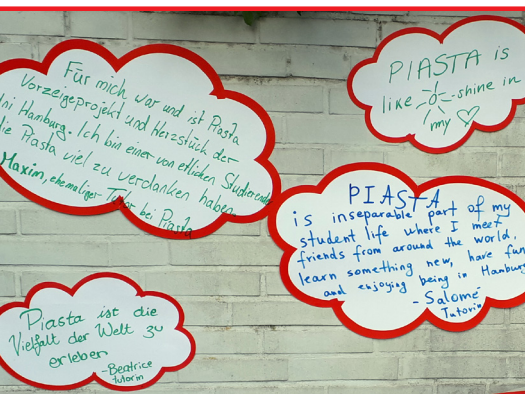 Für mich war und ist Piasta
Vorzeigeprojekt und Herzstück der
Uni Hamburg. Ich bin einer von etlichen Studierenden
die Piasta viel zu verdanken haben
Maxim, ehemaliger Tutor bei Piasta
PIASTA is
like shine in
my
PIASTA
is inseparable part of my
student life where I meet
friends from around the world,
learn something new, have fun
and enjoying being in Hamburg
- Salomé
Tutorin
Piasta ist die
Vielfalt der Welt zu
erleben
- Beatrice
tutorin